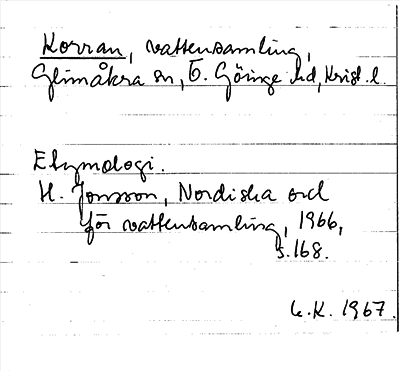 Korran, vattensamling,
Glimåkra sn, Ö. Göinge hd, Krist. l.
Etymologi.
H. Jonsson, Nordiska ord
för vattensamling, 1966,
s. 168.
1967.